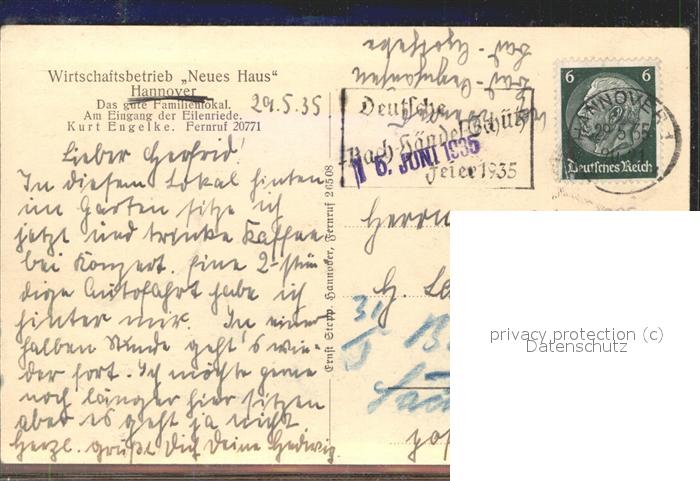 Wirtschaftsbetrieb „Neues Haus"
Hannover
Das gute Familienlokal.
Am Eingang der Eilenriede.
Kurt Engelke. Fernruf 20771
29.5.35
Lieber Gerfrid!
In diesem Lokal hinten
im Garten sitze ich
jetzt und trinke Kaffee
bei Konzert. Eine 2-stün
dige Autofahrt habe ich
hinter mir. In einer
halben Stunde geht's wie-
der fort. Ich möchte gerne
noch länger hier sitzen
aber es geht ja nicht.
Herzl. grüßt Dich Deine Hedwig.
Ernst Stepp, Hannover, Fernruf 26508
Deutsche
Bach-Händel-Schütz
Feier 1935
16. JUNI 1935
6 6
Deutsches Reich
HANNOVER 1
Herrn
31
privacy protection (c)
Datenschutz